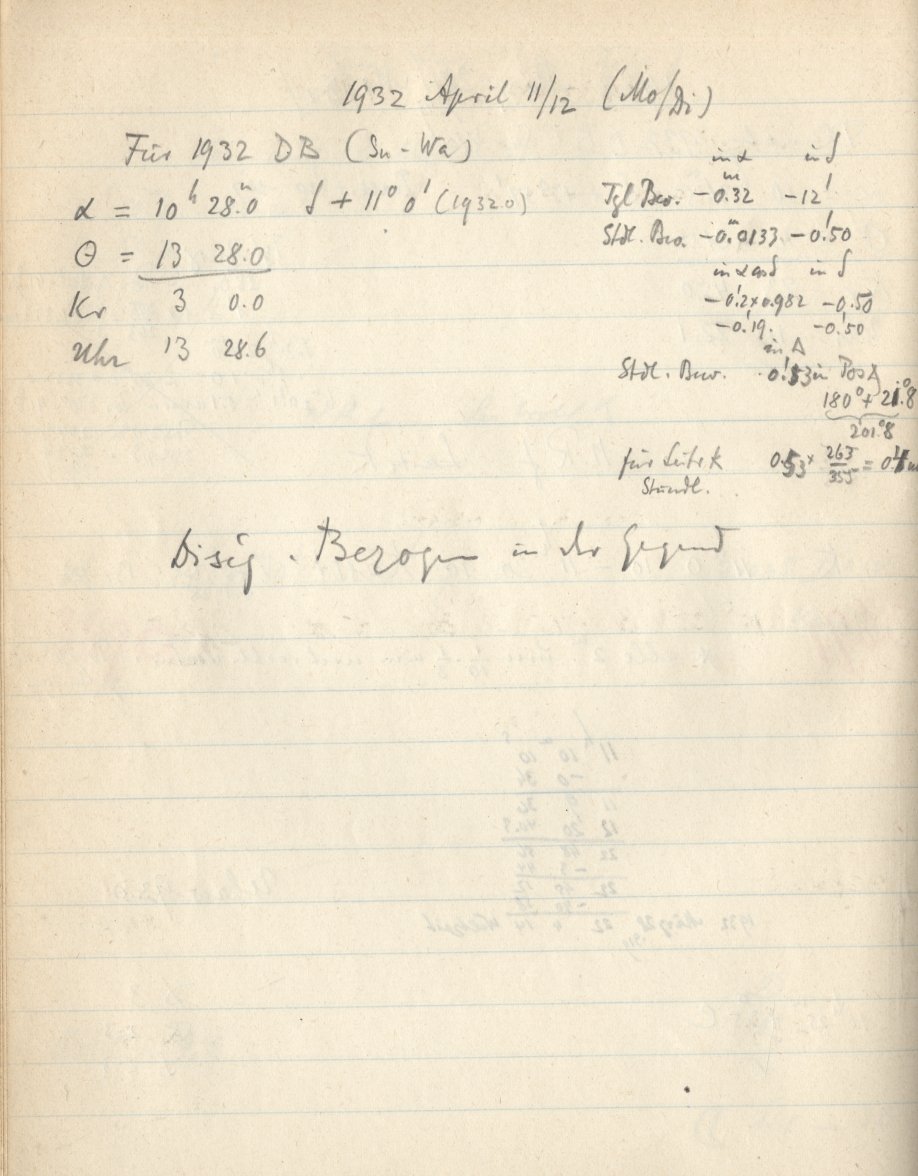 1932 April 11/12 (Mo/Di)
Für 1932 DB (Su-Wa)
α = 10h 28.m0 δ + 11° 0' (1932.0)
θ = 13 28.0
Kr 3 0.0
Uhr 13 28.6
in α in δ
Tgl Bew. -0.m32 -12'
Stdl. Bew. -0.m0133 -0.'50
in α cos δ in δ
-0.'2×0.982 -0.'50
-0.'19. -0.'50
in Δ
Stdl. Bew. 0.'53 in Pos∡
180° + 21.°8
201.°8
für Leitrk 0.53 × 263/355 = 0.4 m
Stündl.
Disig. Bezogen in der Gegend